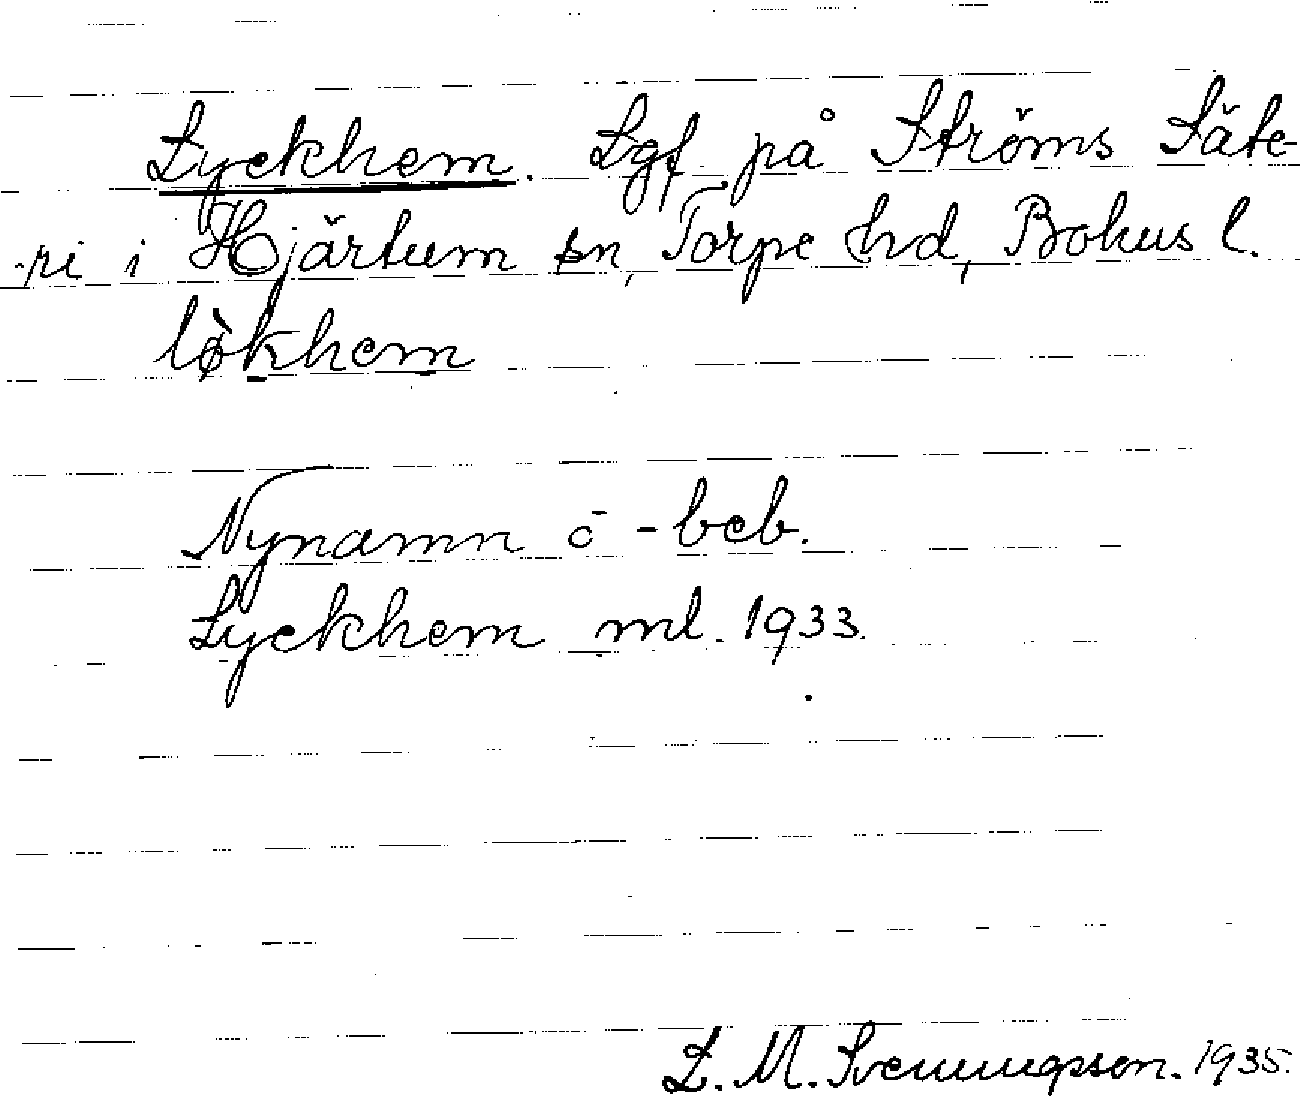 Lyckhem. Lgf på Ströms Säte-
ri i Hjärtum sn, Torpe hd, Bohus l.
lø̀khem
Nynamn o -beb.
Lyckhem ml. 1933.
L. M. Svenungsson. 1935.